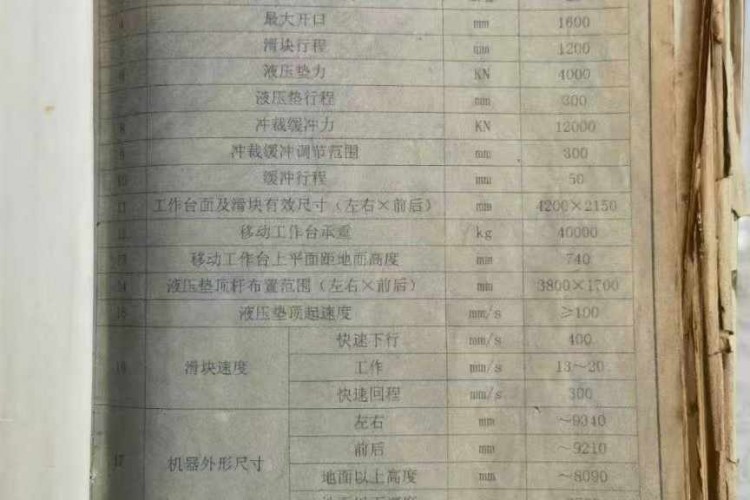 4 最大开口 mm 1600
滑块行程 mm 1200
6 液压垫力 KN 4000
液压垫行程 mm 300
8 冲裁缓冲力 KN 12000
9 冲裁缓冲调节范围 mm 300
10 缓冲行程 mm 50
11 工作台面及滑块有效尺寸(左右×前后) mm 4200×2150
12 移动工作台承重 kg 40000
13 移动工作台上平面距地面高度 mm 740
14 液压垫顶杆布置范围(左右×前后) mm 3800×1700
15 液压垫顶起速度 mm/s ≥100
快速下行 mm/s 400
16 滑块速度 工作 mm/s 13~20
快速回程 mm/s 300
左右 mm ~9340
17 机器外形尺寸 前后 mm ~9210
地面以上高度 mm ~8090